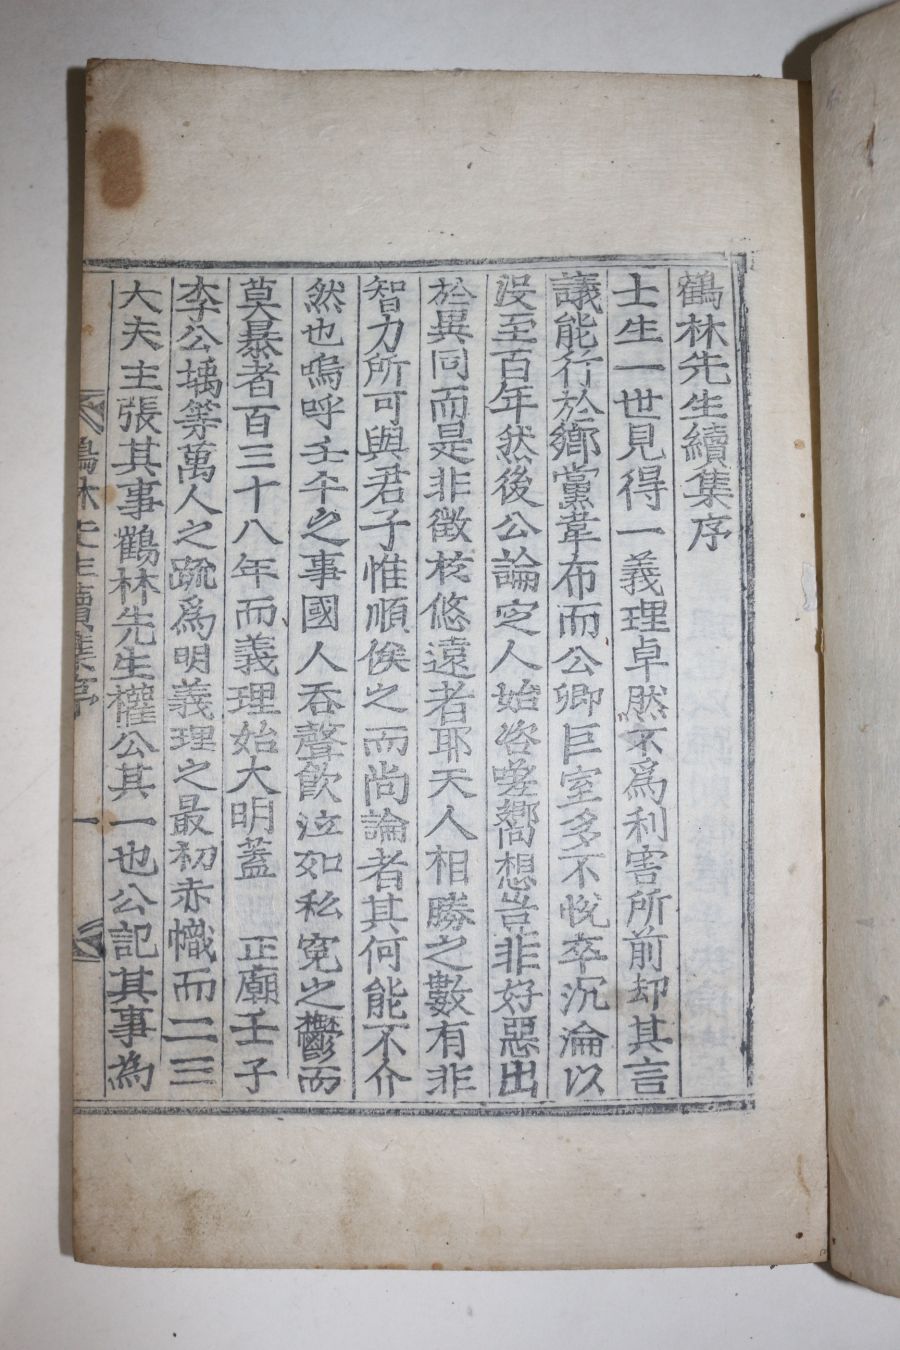 鶴林先生續集序
士生一世見得一義理卓然不爲利害所前却其言
議能行於鄕黨韋布而公卿巨室多不悅卒沉淪以
沒至百年然後公論定人始咨嗟嚮想豈非好惡出
於異同而是非徵核悠遠者耶天人相勝之數有非
智力所可與君子惟順俟之而尚論者其何能不介
然也嗚呼壬午之事國人呑聲飮泣如私寃之鬱而
莫暴者百三十八年而義理始大明蓋 正廟壬子
李公㙖等萬人之疏爲明義理之最初赤幟而二三
大夫主張其事鶴林先生權公其一也公記其事為
鶴林先生續集序 一